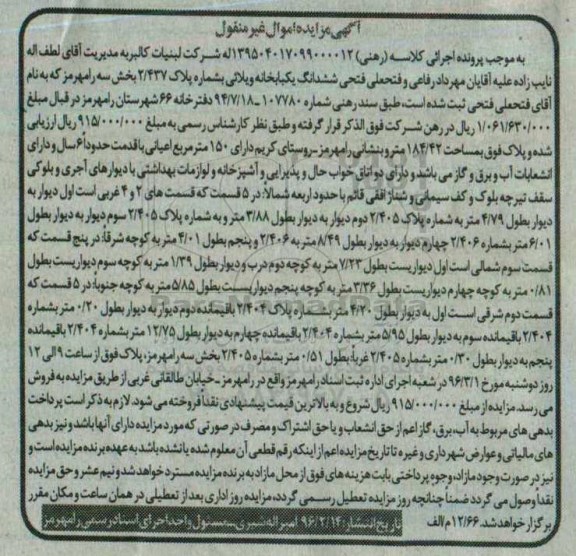 آگهی مزایده اموال غیر منقول
به موجب پرونده اجرائی کلاسه (رهنی) ۱۳۹۵۰۴۰۱۷۰۹۹۰۰۰۰۱۲ له شرکت لبنیات کالبر به مدیریت آقای لطف اله
نایب زاده علیه آقایان مهرداد رفاعی و فتحعلی فتحی ششدانگ یکبابخانه ویلائی بشماره پلاک ۲/۴۳۷ بخش سه رامهرمز که به نام
آقای فتحعلی فتحی ثبت شده است، طبق سند رهنی شماره ۱۰۷۷۸۰-۹۴/۷/۱۸ دفترخانه ۶۶ شهرستان رامهرمز در قبال مبلغ
۱/۰۶۱/۶۳۰/۰۰۰ ریال در رهن شرکت فوق الذکر قرار گرفته و طبق نظر کارشناس رسمی به مبلغ ۹۱۵/۰۰۰/۰۰۰ ریال ارزیابی
شده و پلاک فوق بمساحت ۱۸۴/۴۲ متر و بنشانی رامهرمز-روستای کریم دارای ۱۵۰ مترمربع اعیانی با قدمت حدوداً ۶ سال و دارای
انشعابات آب و برق و گاز می باشد و دارای دو اتاق خواب حال و پذیرایی و آشپزخانه و لوازمات بهداشتی با دیوارهای آجری و بلوکی
سقف تیرچه بلوک و کف سیمانی و شناژ افقی قائم با حدود اربعه شمالاً: در ۵ قسمت که قسمت های ۲ و ۴ غربی است اول دیوار به
دیوار بطول ۴/۷۹ متر به شماره پلاک ۲/۴۰۵ دوم دیوار به دیوار بطول ۳/۸۸ متر و به شماره پلاک ۲/۴۰۵ سوم دیوار به دیوار بطول
۶/۰۱ متر بشماره ۲/۴۰۶ چهارم دیوار به دیوار بطول ۸/۴۹ متر به ۲/۴۰۶ و پنجم بطول ۴/۰۱ متر به کوچه شرقاً: در پنج قسمت که
قسمت سوم شمالی است اول دیواریست بطول ۷/۲۳ متر به کوچه دوم درب و دیوار بطول ۱/۳۹ متر به کوچه سوم دیواریست بطول
۰/۸۱ متر به کوچه چهارم دیواریست بطول ۳/۳۶ متر به کوچه پنجم دیواریست بطول ۵/۸۵ متر به کوچه جنوباً: در ۵ قسمت که
قسمت دوم شرقی است اول به دیوار بطول ۴/۲۰ متر بشماره پلاک ۲/۴۰۴ باقیمانده دوم دیوار به دیوار بطول ۰/۲۰ متر بشماره
۲/۴۰۴ باقیمانده سوم به دیوار بطول ۵/۹۵ متر بشماره ۲/۴۰۴ باقیمانده چهارم به دیوار بطول ۱۲/۷۵ متر بشماره ۲/۴۰۴ باقیمانده
پنجم به دیوار بطول ۰/۳۰ متر بشماره ۲/۴۰۵ غرباً: بطول ۰/۵۱ متر بشماره ۲/۴۰۵ بخش سه رامهرمز، پلاک فوق از ساعت ۹ الی ۱۲
روز دوشنبه مورخ ۹۶/۳/۱ در شعبه اجرای اداره ثبت اسناد رامهرمز واقع در رامهرمز - خیابان طالقانی غربی از طریق مزایده به فروش
می رسد. مزایده از مبلغ ۹۱۵/۰۰۰/۰۰۰ ریال شروع و به بالاترین قیمت پیشنهادی نقداً فروخته می شود. لازم به ذکر است پرداخت
بدهی های مربوط به آب، برق، گاز اعم از حق انشعاب و یا حق اشتراک و مصرف در صورتی که مورد مزایده دارای آنها باشد و نیز بدهی
های مالیاتی و عوارض شهرداری و غیره تا تاریخ مزایده اعم از اینکه رقم قطعی آن معلوم شده یا نشده باشد به عهده برنده مزایده است و
نیز در صورت وجود مازاد، وجوه پرداختی بابت هزینه های فوق از محل مازاد به برنده مزایده مسترد خواهد شد و نیم عشر و حق مزایده
نقداً وصول می گردد ضمناً چنانچه روز مزایده تعطیل رسمی گردد، مزایده روز اداری بعد از تعطیلی در همان ساعت و مکان مقرر
برگزار خواهد شد. ۱۲/۶۶/م/الف
تاریخ انتشار: ۹۶/۲/۱۴ امیراله شیری-مسئول واحد اجرای اسناد رسمی رامهرمز